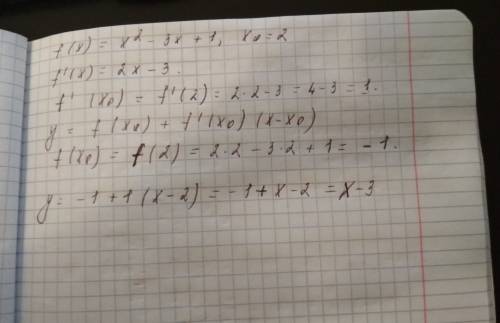 f(x) = x² - 3x + 1, x₀ = 2
f'(x) = 2x - 3.
f'(x₀) = f'(2) = 2·2 - 3 = 4 - 3 = 1.
y = f(x₀) + f'(x₀)(x - x₀)
f(x₀) = f(2) = 2·2 - 3·2 + 1 = -1.
y = -1 + 1(x - 2) = -1 + x - 2 = x - 3